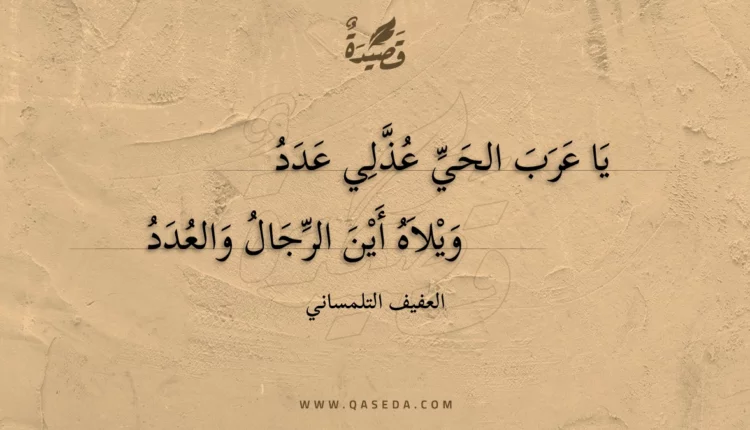 قَصِيدَةٌ
يَا عَرَبَ الحَيِّ عُذَّلِي عَدَدُ
وَيْلاَهُ أَيْنَ الرِّجَالُ وَالعُدَدُ
العفيف التلمساني
WWW.QASEDA.COM